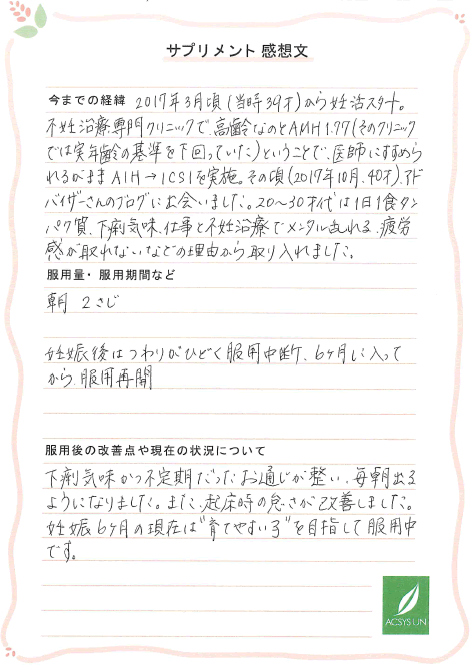 サプリメント 感想文
今までの経緯 2017年3月頃(当時39才)から妊活スタート。
不妊治療専門クリニックで、高齢なのとAMH1.77(そのクリニック
では実年齢の基準を下回っていた)ということで、医師にすすめら
れるがままAIH→ICSIを実施。その頃(2017年10月、40才)、アド
バイザーさんのブログにお会いました。20〜30才代は1日1食タン
パク質、下痢気味、仕事と不妊治療でメンタル乱れる、疲労
感が取れないなどの理由から取り入れました。
服用量・服用期間など
朝 2さじ
妊娠後はつわりがひどく服用中断、6ヶ月に入って
から、服用再開
服用後の改善点や現在の状況について
下痢気味かつ不定期だったお通じが整い、毎朝出る
ようになりました。また、起床時の怠さが改善しました。
妊娠6ヶ月の現在は"育てやすい子"を目指して服用中
です。
ACSYS UN